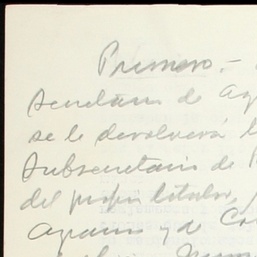 Primero.-
Secretaría de Ag
se le devolverá l
Subsecretaría de
del propio titular,
Agrario y de Co